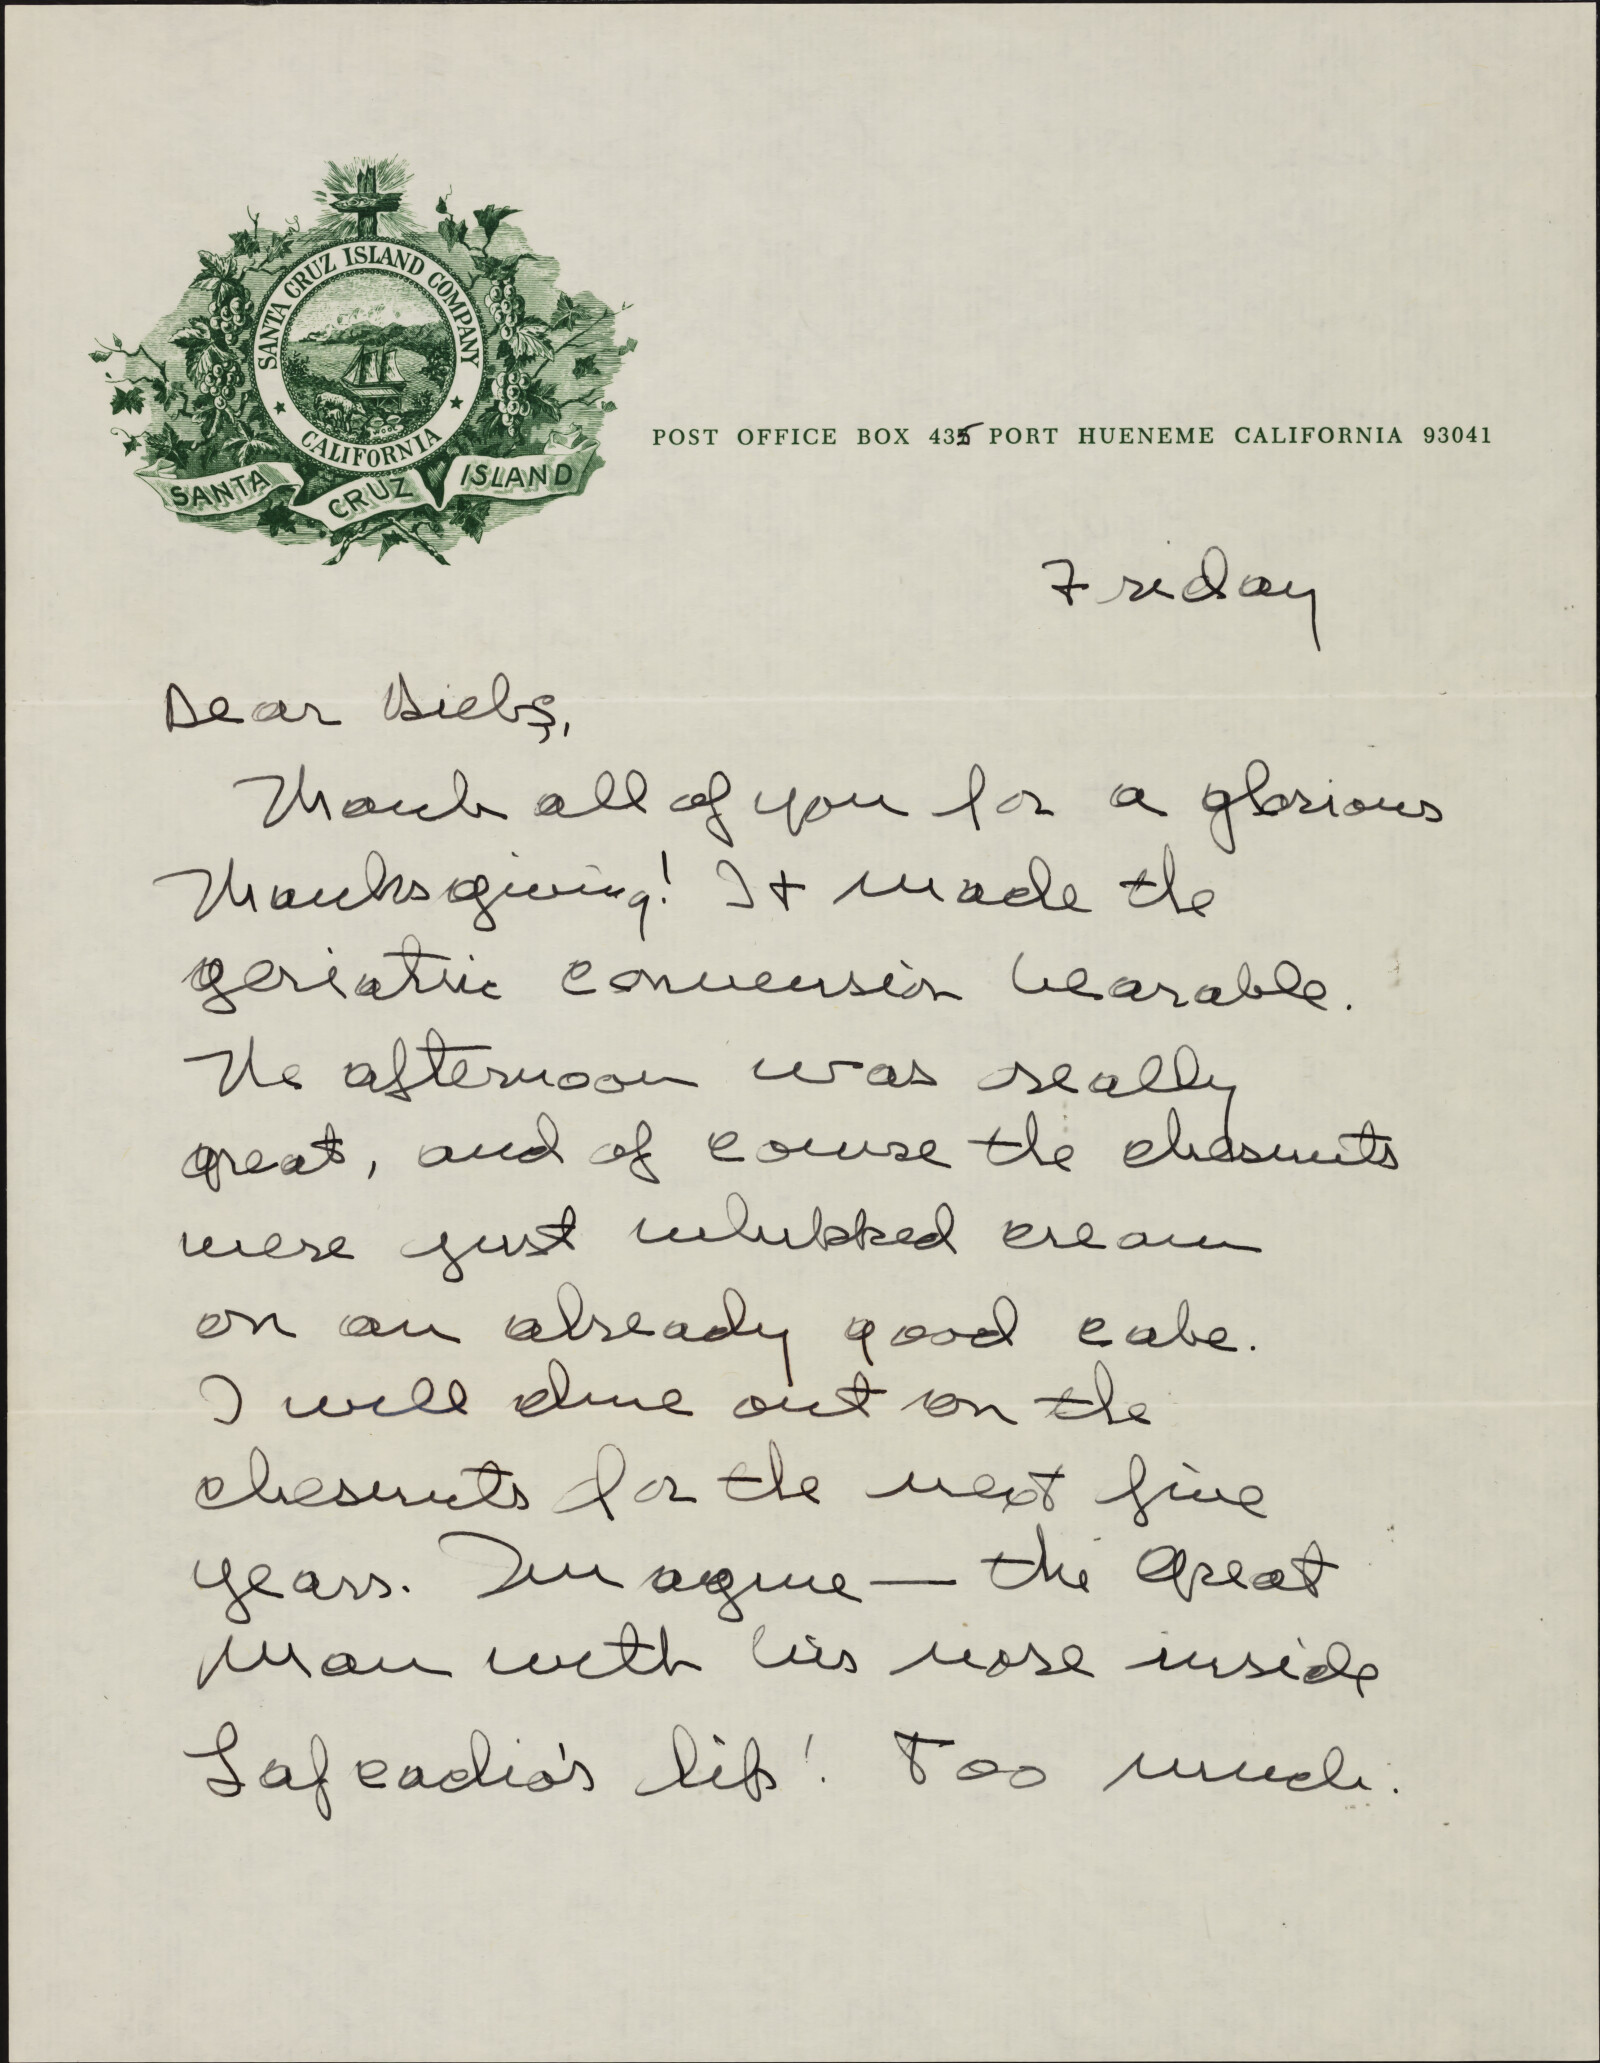 SANTA CRUZ ISLAND COMPANY
CALIFORNIA
WOOL
SANTA CRUZ ISLAND
POST OFFICE BOX 435 PORT HUENEME CALIFORNIA 93041
Friday
Dear Diebs,
Thank all of you for a glorious
Thanksgiving! It made the
geriatric convension bearable.
The afternoon was really
great, and of course the chesnuts
were just whipped cream
on an already good cake.
I will dine out on the
chesnuts for the next five
years. Imagine — the Great
Man with his nose inside
Lafcadio's lips! Too much.